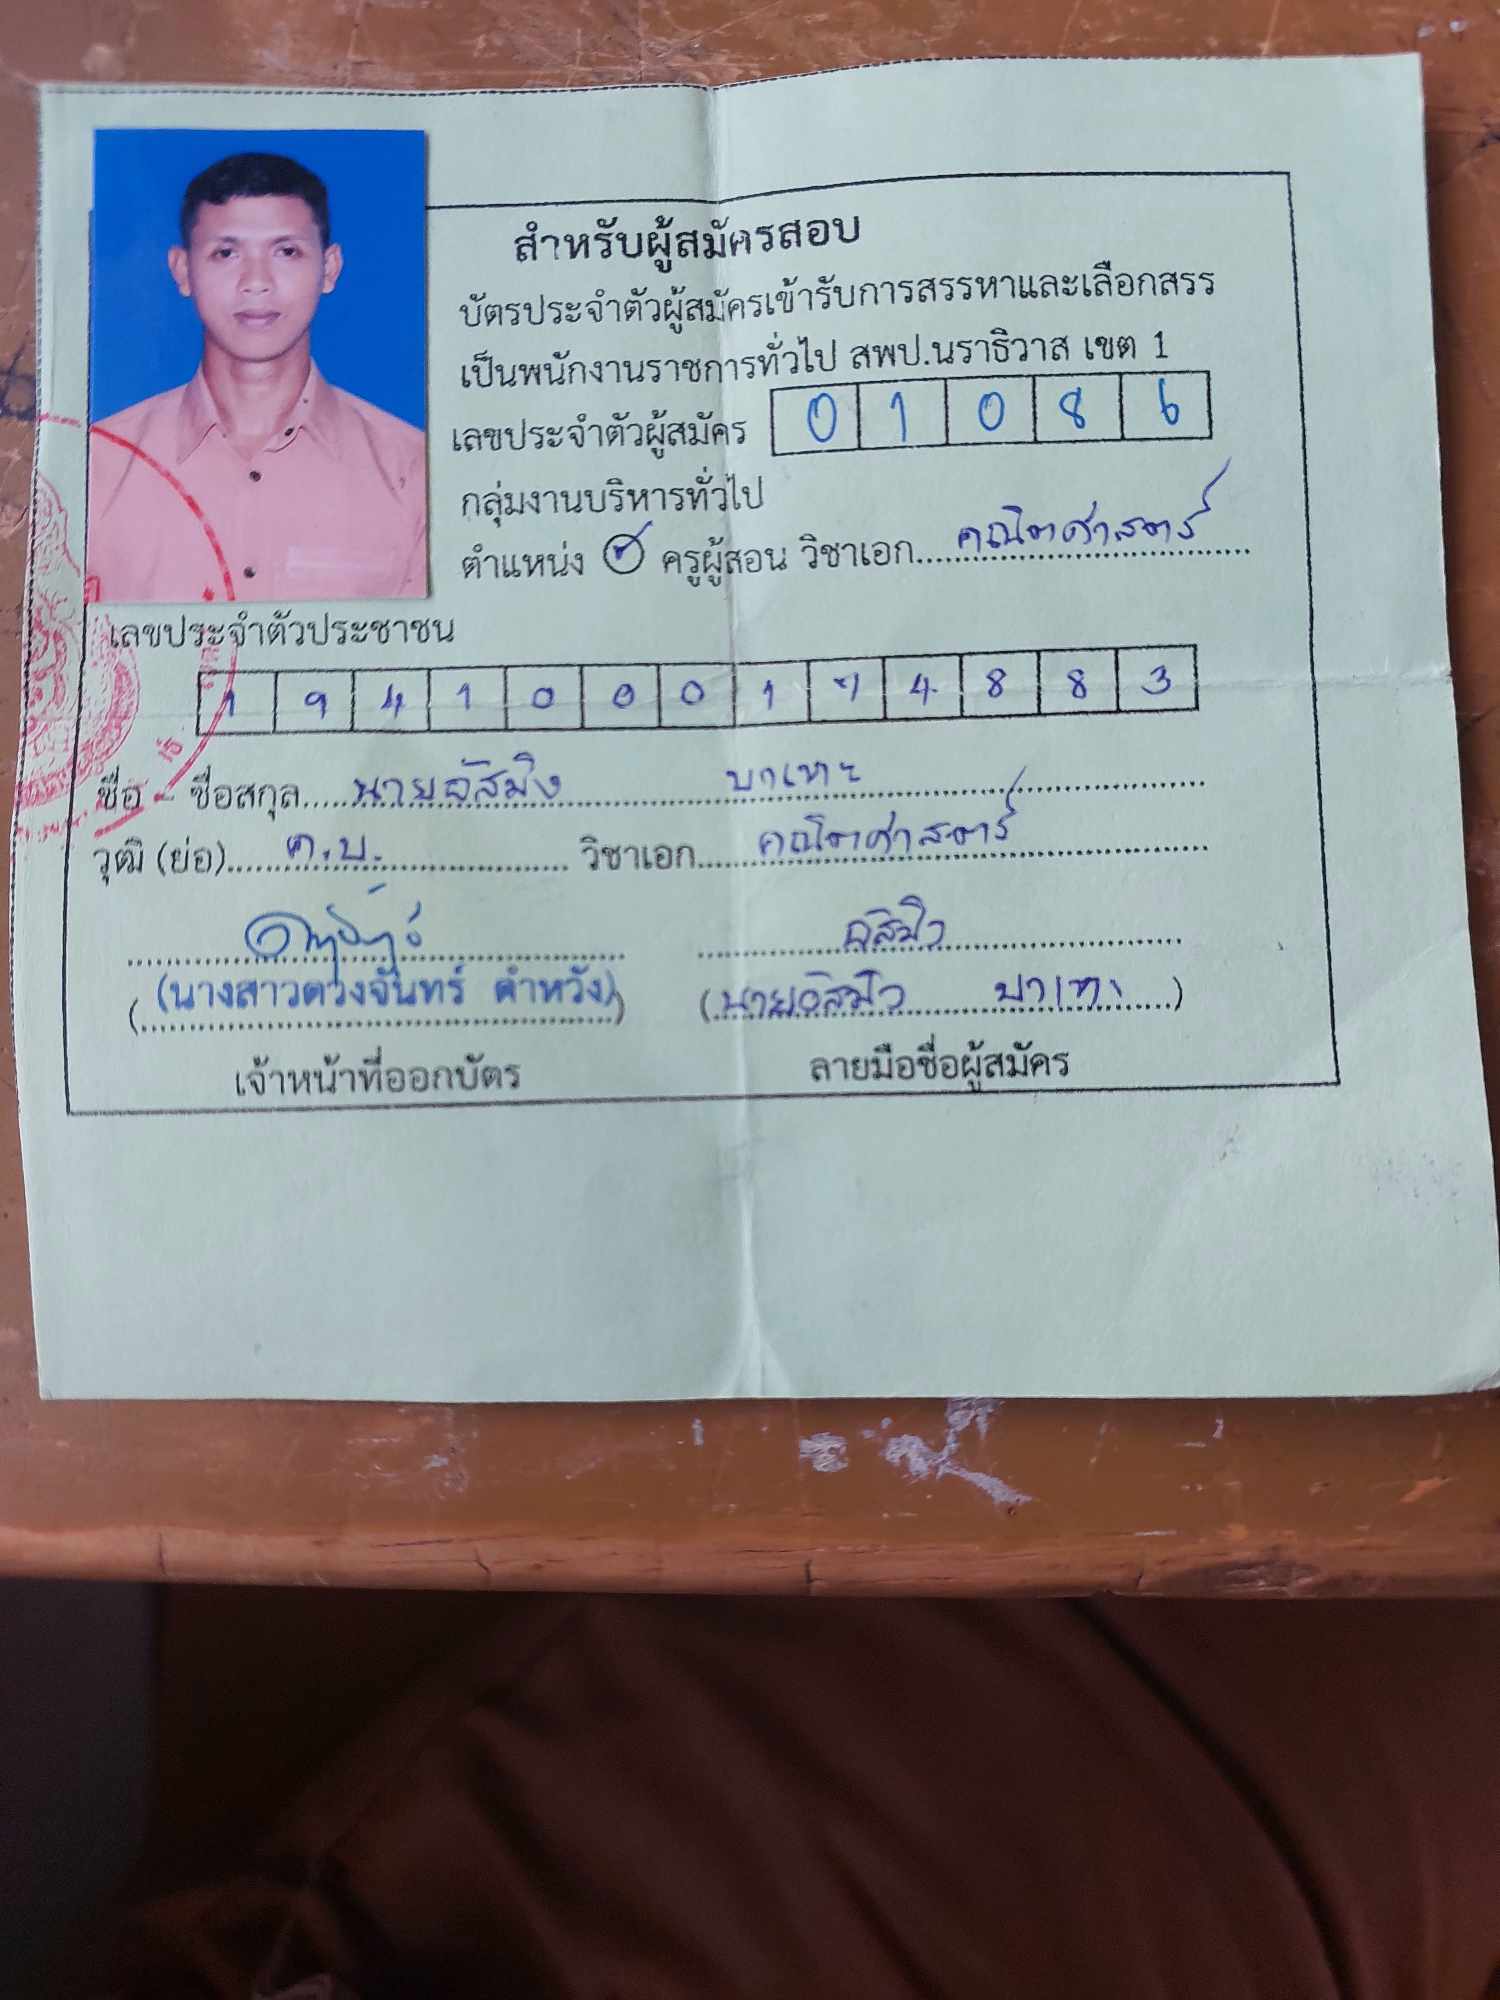 สำหรับผู้สมัครสอบ
บัตรประจำตัวผู้สมัครเข้ารับการสรรหาและเลือกสรร
เป็นพนักงานราชการทั่วไป สพป.นราธิวาส เขต 1
เลขประจำตัวผู้สมัคร 0 1 0 8 6
กลุ่มงานบริหารทั่วไป
ตำแหน่ง ครูผู้สอน วิชาเอก คณิตศาสตร์
เลขประจำตัวประชาชน
1 9 4 1 0 0 0 1 7 4 8 8 3
ชื่อ - ชื่อสกุล นายอัสมิง บาเหะ
วุฒิ (ย่อ) ค.บ. วิชาเอก คณิตศาสตร์
อัสมิง
(นางสาวดวงจันทร์ คำหวัง) (นายอัสมิง บาเหะ)
เจ้าหน้าที่ออกบัตร ลายมือชื่อผู้สมัคร